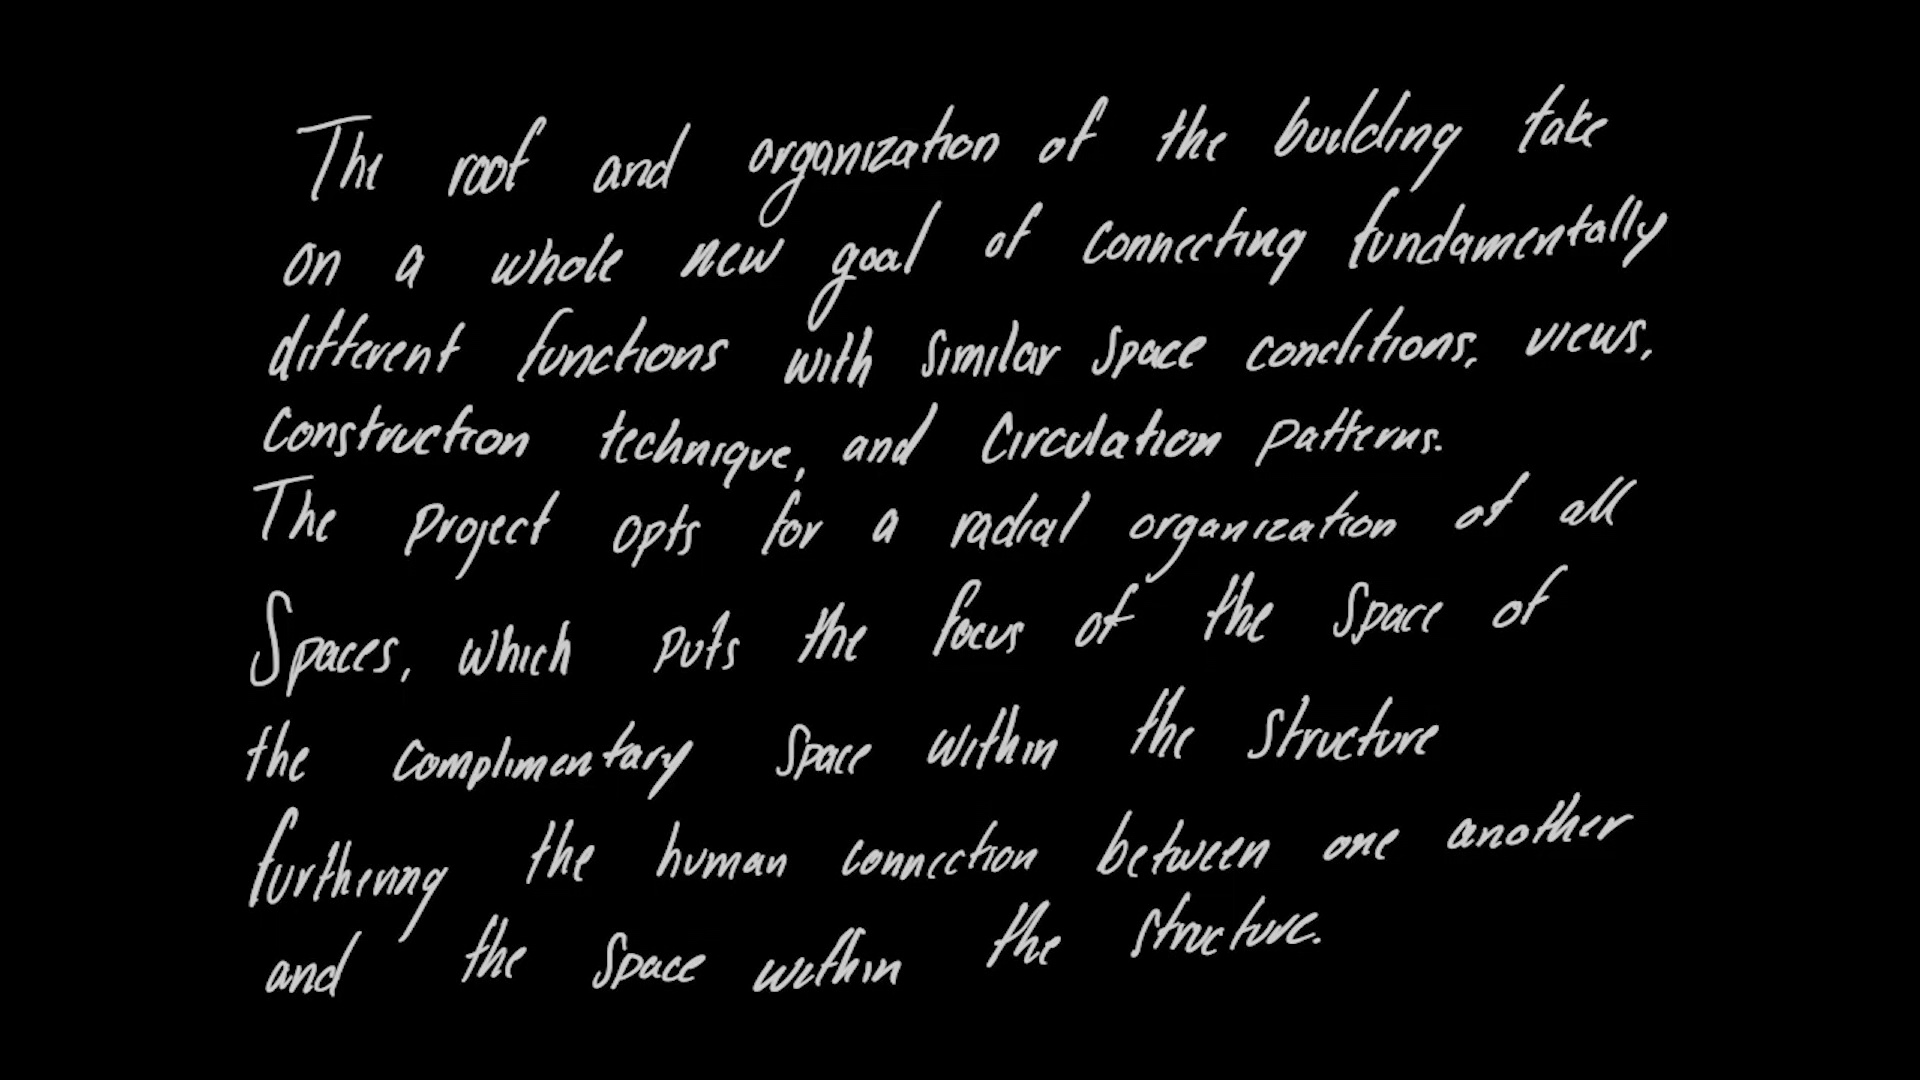 The roof and organization of the building take
on a whole new goal of connecting fundamentally
different functions with similar space conditions, views,
construction technique, and circulation patterns.
The project opts for a radial organization of all
spaces, which puts the focus of the space of
the complimentary space within the structure
furthering the human connection between one another
and the space within the structure.